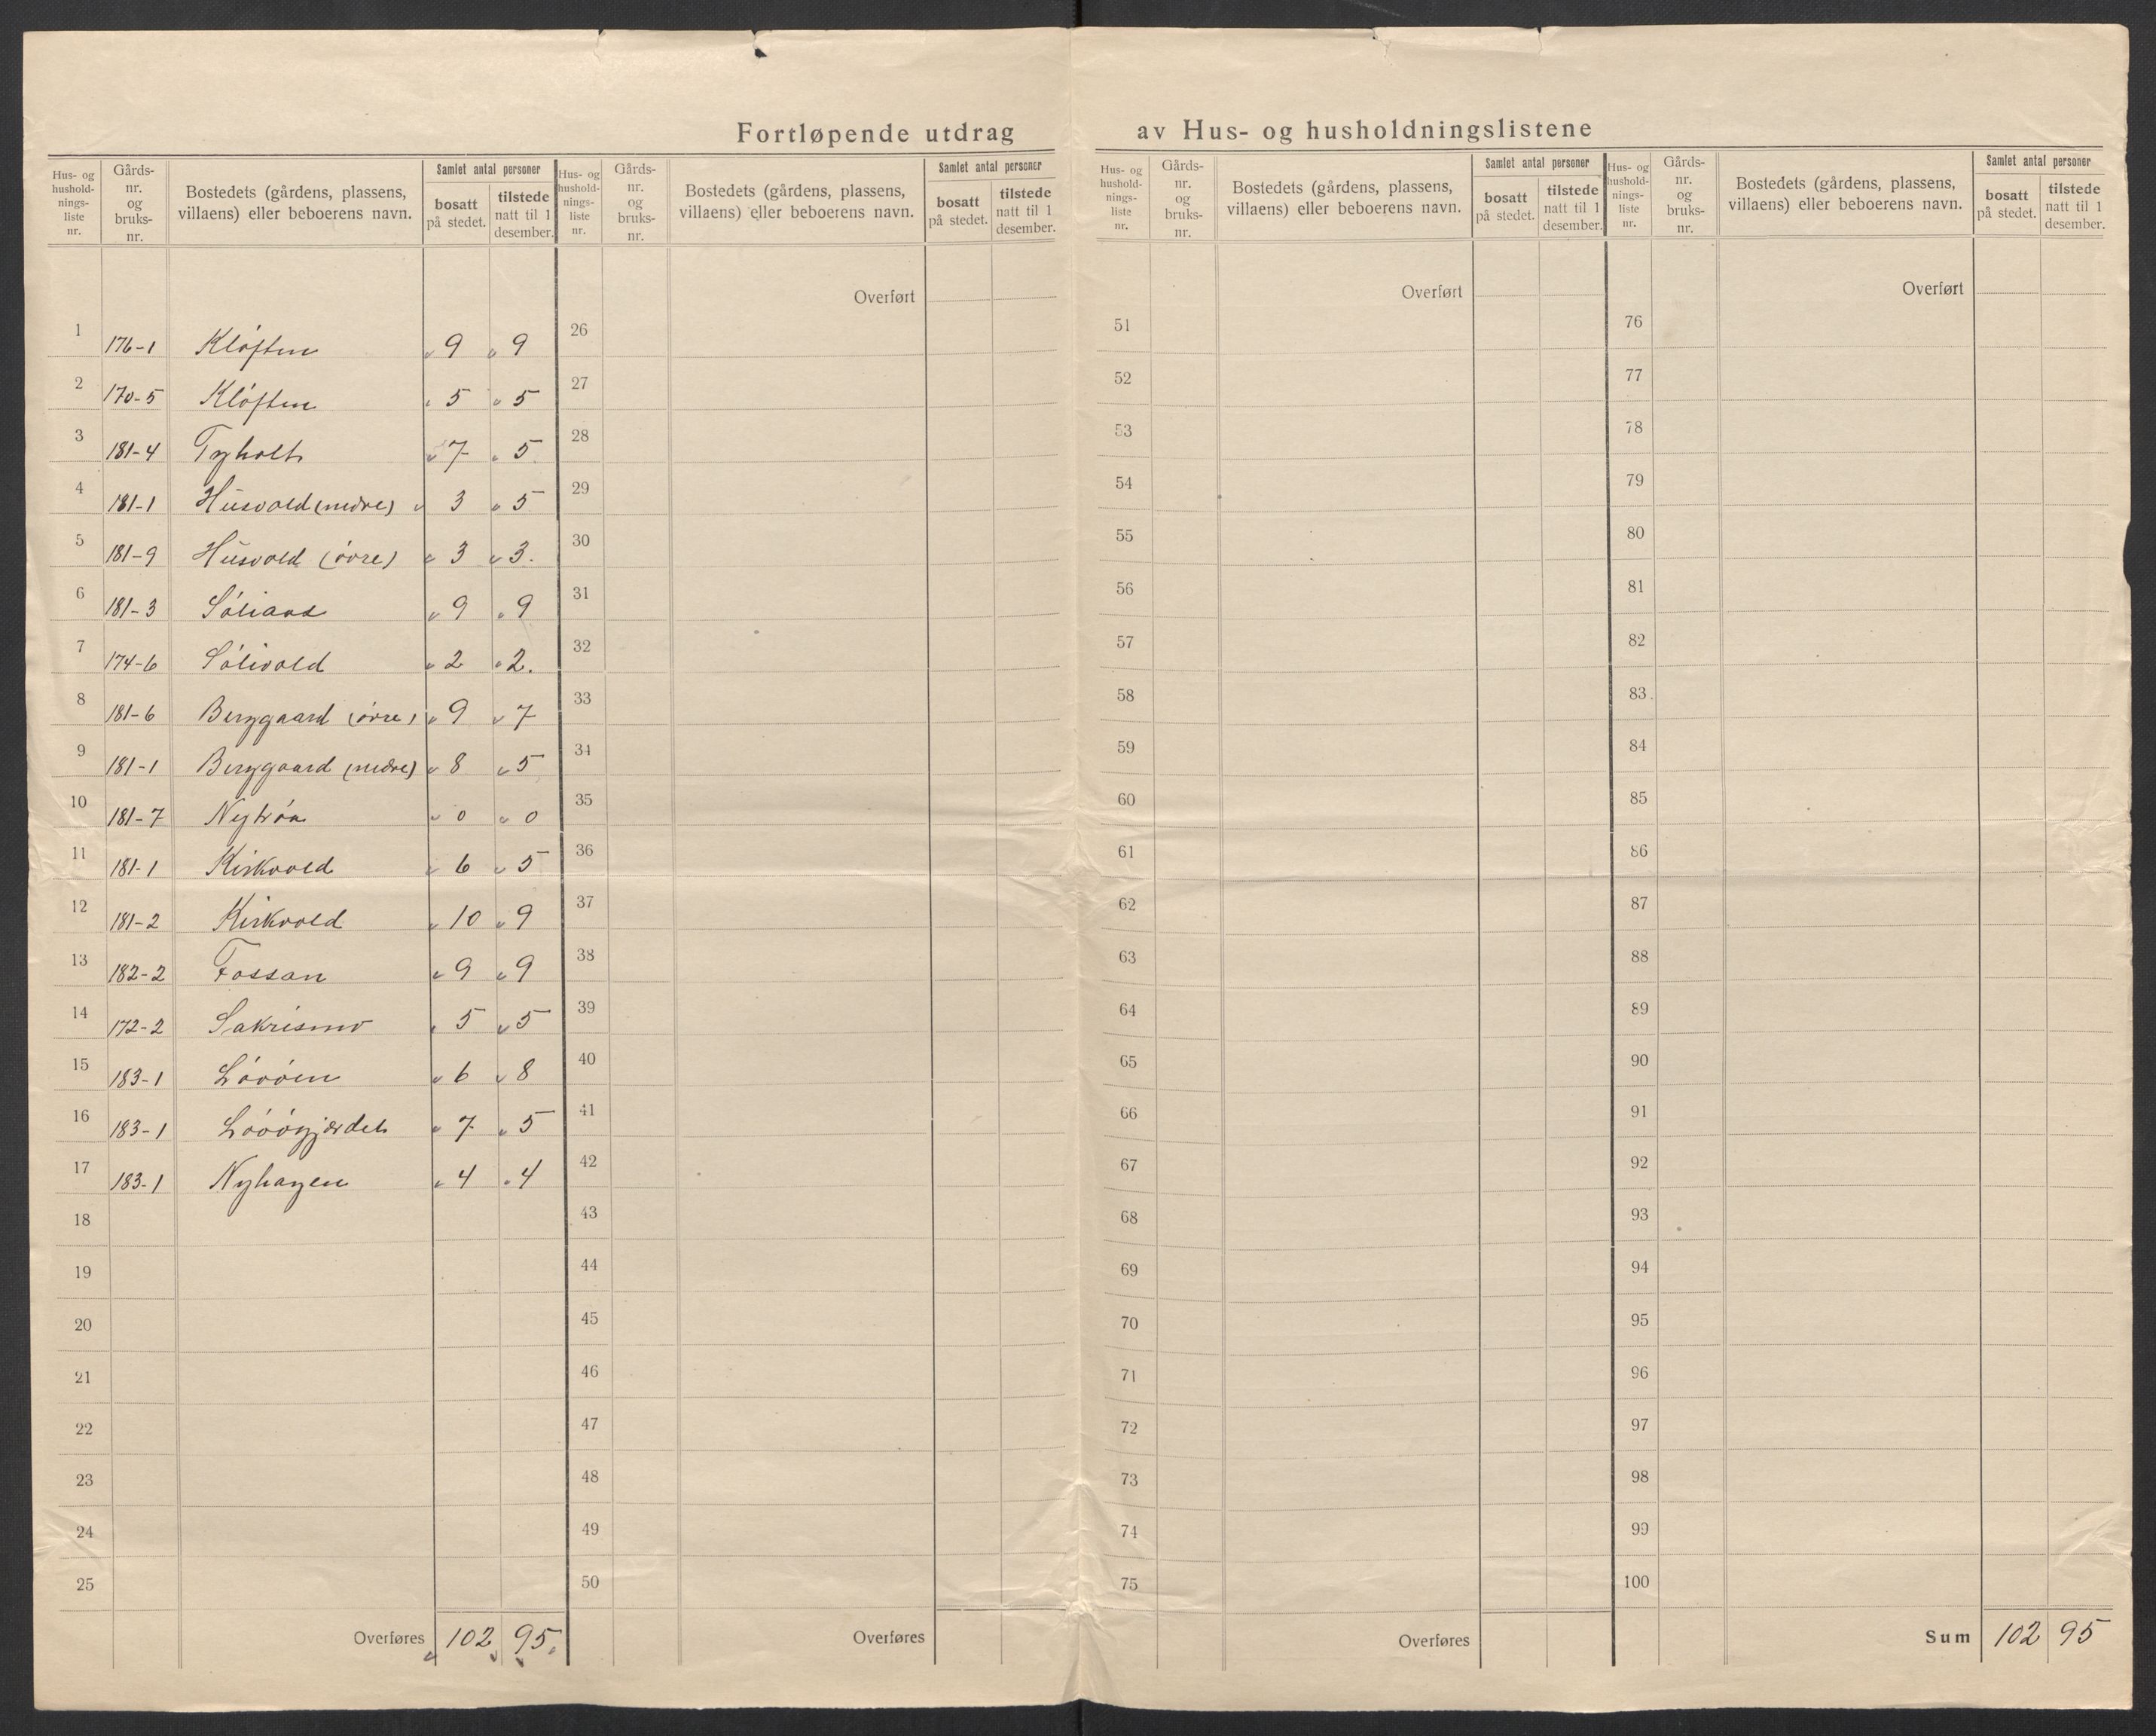 Fortløpende utdrag av Hus- og husholdningslistene
Hus- og hushold-nings-liste nr. Gårds-nr. og bruks-nr. Bostedets (gårdens, plassens, villaens) eller beboerens navn. Samlet antal personer bosatt på stedet. tilstede natt til 1 desember.
1 176-1 Kløften 9 9
2 170-5 Kløften 5 5
3 181-4 Tyholt 7 5
4 181-1 Husvold (nedre) 3 5
5 181-9 Husvold (øvre) 3 3.
6 181-3 Søliaas 9 9
7 174-6 Sølivold 2 2.
8 181-6 Berggaard (øvre) 9 7
9 181-1 Berggaard (nedre) 8 5
10 181-7 Nytrøa 0 0
11 181-1 Kirkvold 6 5
12 181-2 Kirkvold 10 9
13 182-2 Fossan 9 9
14 172-2 Sakrismo 5 5
15 183-1 Løvøen 6 8
16 183-1 Løvøgjærdet 7 5
17 183-1 Nyhagen 4 4
18
19
20
21
22
23
24
25
Overføres 102 95.
Hus- og hushold-nings-liste nr. Gårds-nr. og bruks-nr. Bostedets (gårdens, plassens, villaens) eller beboerens navn. Samlet antal personer bosatt på stedet. tilstede natt til 1 desember.
Overført
26
27
28
29
30
31
32
33
34
35
36
37
38
39
40
41
42
43
44
45
46
47
48
49
50
Overføres
Hus- og hushold-nings-liste nr. Gårds-nr. og bruks-nr. Bostedets (gårdens, plassens, villaens) eller beboerens navn. Samlet antal personer bosatt på stedet. tilstede natt til 1 desember.
Overført
51
52
53
54
55
56
57
58
59
60
61
62
63
64
65
66
67
68
69
70
71
72
73
74
75
Overføres
Hus- og hushold-nings-liste nr. Gårds-nr. og bruks-nr. Bostedets (gårdens, plassens, villaens) eller beboerens navn. Samlet antal personer bosatt på stedet. tilstede natt til 1 desember.
Overført
76
77
78
79
80
81
82
83
84
85
86
87
88
89
90
91
92
93
94
95
96
97
98
99
100
Sum 102 95